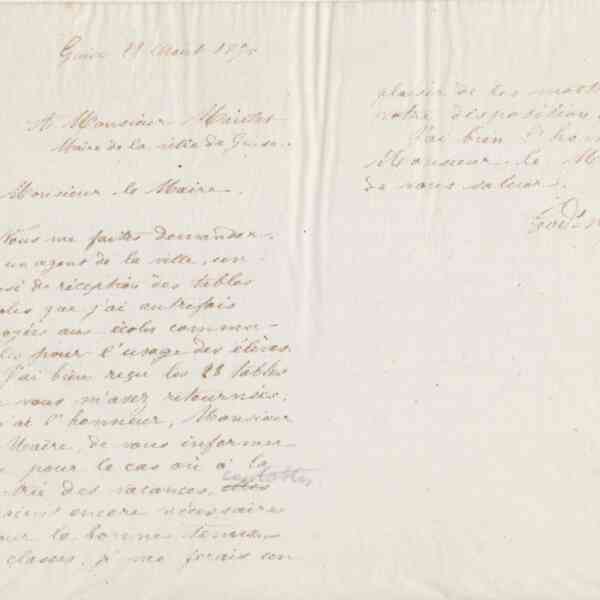 Guise 21 Août 187
A Monsieur
Maire de la ville de Guise.
Monsieur le Maire.
Vous me faites demander,
un agent de la ville, un
de réception des tables
que j'ai autrefois
aux écoles commu-
pour l'usage des élèves.
J'ai bien reçu les 28 tables
vous m'avez retournées;
et l'honneur, Monsieur
Maire, de vous informer
pour le cas où à la
des vacances, elles ces tables
encore nécessaires
la bonne tenue
classes, je me ferais un
plaisir de les mett
votre disposition.
J'ai bien l'hon
Monsieur le M
de vous saluer.
God